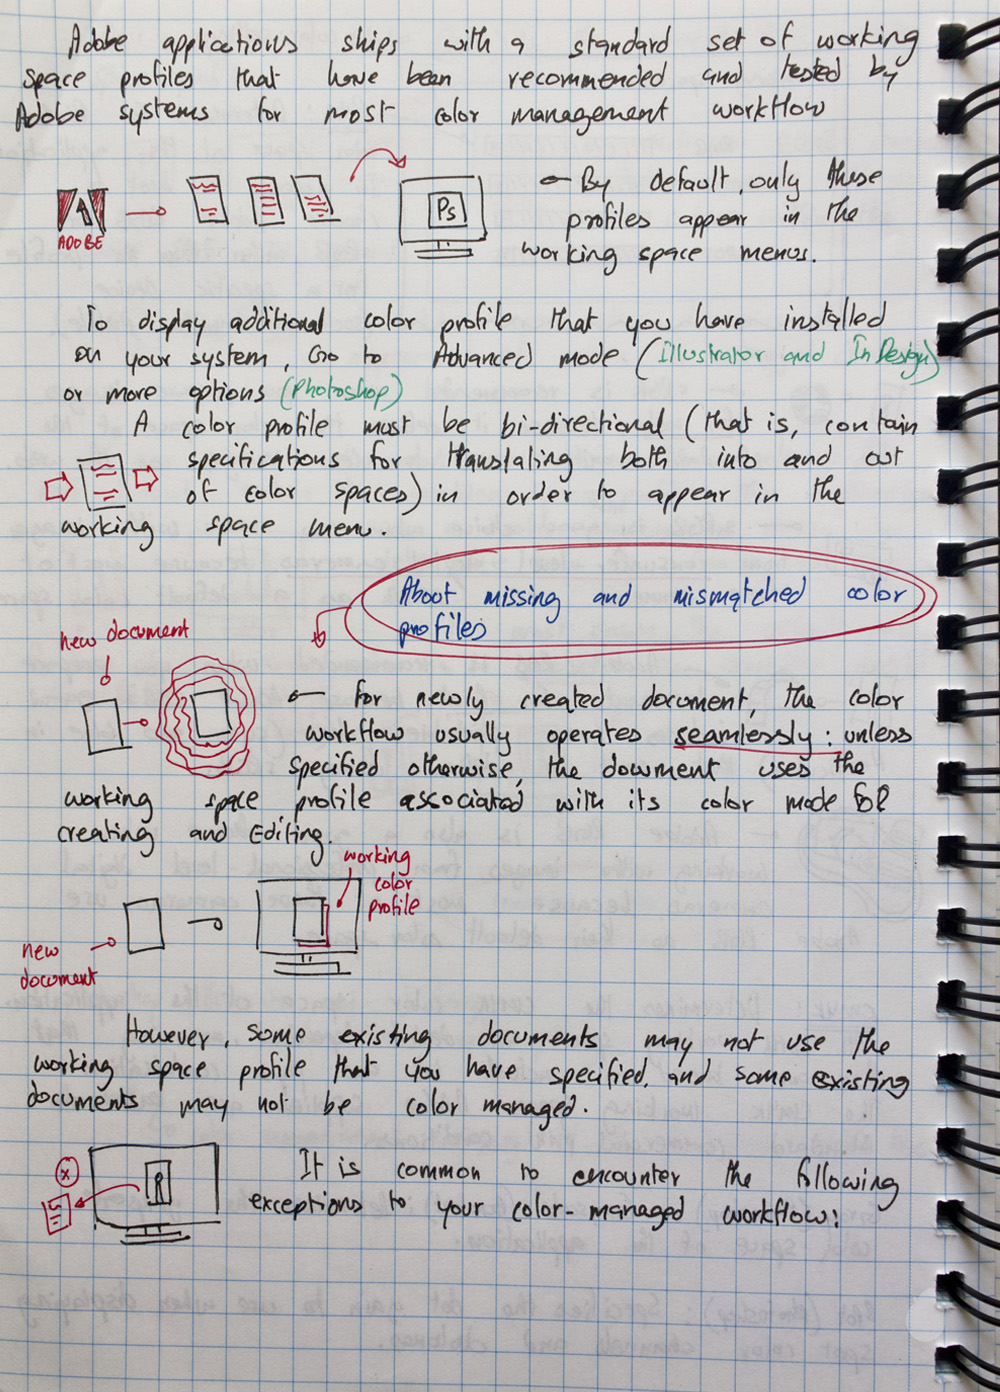 Adobe applications ships with a standard set of working
space profiles that have been recommended and tested by
Adobe systems for most color management workflow
ADOBE
Ps
By default, only these
profiles appear in the
working space menus.
To display additional color profile that you have installed
on your system, Go to Advanced mode (Illustrator and InDesign)
or more options (Photoshop)
A color profile must be bi-directional (that is, contain
specifications for translating both into and out
of color spaces) in order to appear in the
working space menu.
About missing and mismatched color
profiles
new document
for newly created document, the color
workflow usually operates seamlessly: unless
specified otherwise, the document uses the
working space profile associated with its color mode for
creating and Editing.
working
color
profile
new
document
However, some existing documents may not use the
working space profile that you have specified, and some existing
documents may not be color managed.
It is common to encounter the following
exceptions to your color-managed workflow: